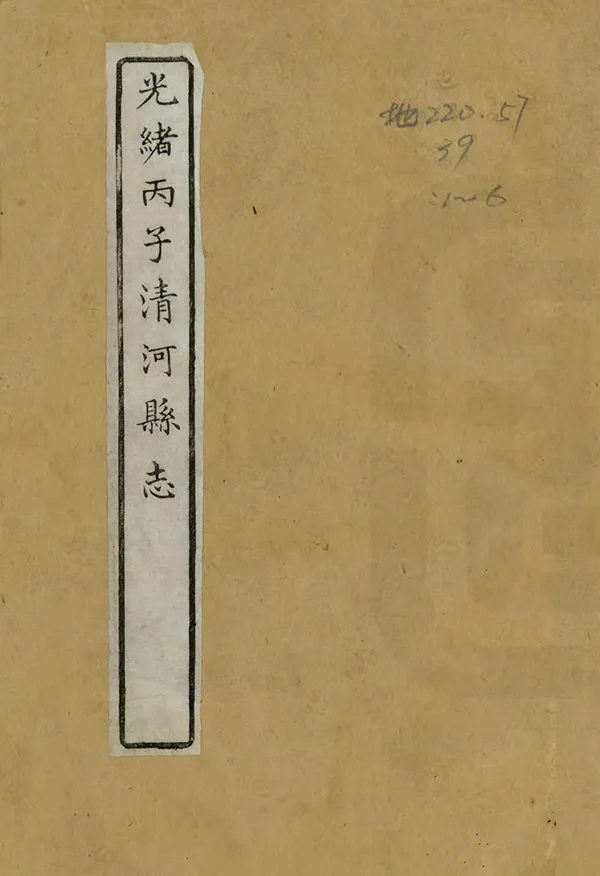 光緒丙子清河縣志
地220.57
39
:1~6